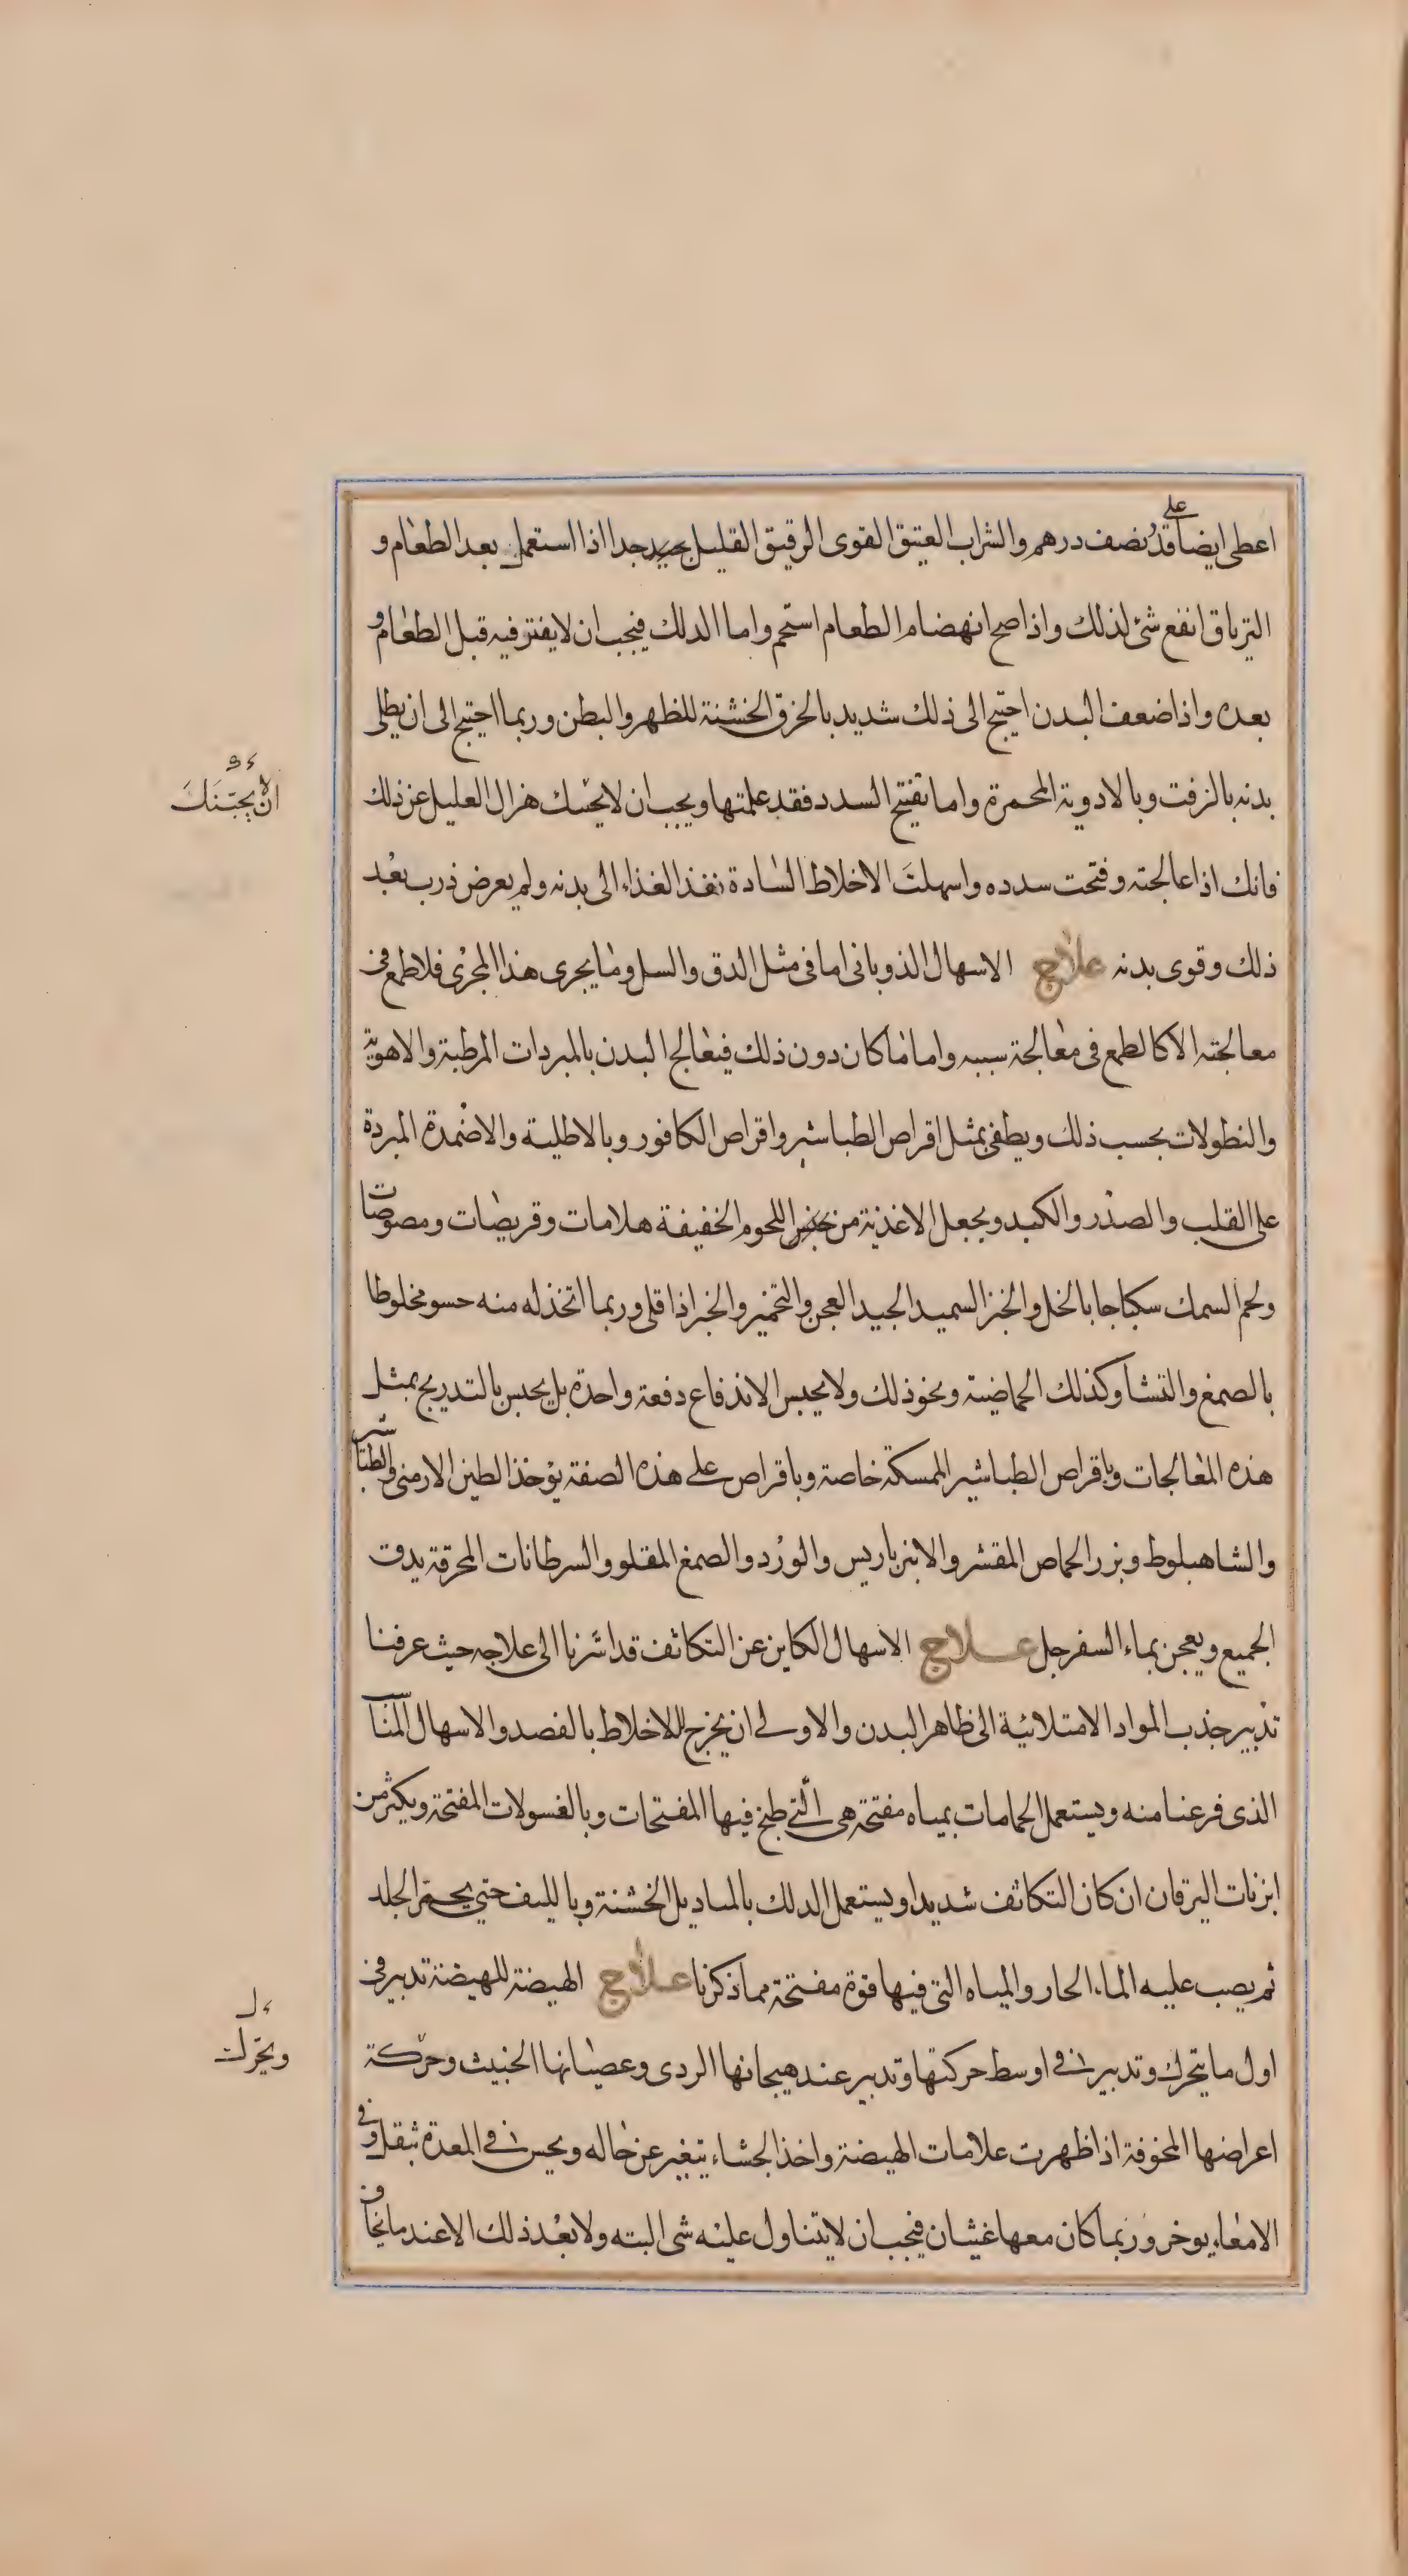 اعطى ايضا على قدر نصف درهم والشراب العتيق القوى الرقيق القليل جيد جدا اذا استعمل بعد الطعام و
الترياق انفع شئ لذلك واذا صح انهضام الطعام استحم واما الدلك فيجب ان لا يفتر فيه قبل الطعام و
بعده واذا ضعف البدن احتيج الى ذلك شديد بالخرق الخشنة للظهر والبطن وربما احتيج الى ان يطلى
بدنه بالزفت وبالادوية المحمرة واما تفتيح السدد فقد علمتها ويجب ان لا يحثك هزال العليل عن ذلك
فانك اذا عالجته وفتحت سدده واسهلت الاخلاط السادة نفذ الغذاء الى بدنه ولم يعرض ذرب بعد
ذلك وقوى بدنه علاج الاسهال الذوبانى اما فى مثل الدق والسل وما يجرى هذا المجرى فلا طمع فى
معالجته الا كالطمع فى معالجة سببه واما ما كان دون ذلك فيعالج البدن بالمبردات المرطبة والاهوية
والنطولات بحسب ذلك ويطفى بمثل اقراص الطباشير واقراص الكافور وبالاطلية والاضمدة المبردة
على القلب والصدر والكبد ويجعل الاغذية من جنس اللحوم الخفيفة هلامات وقريصات ومصوصات
ولحم السمك سكباجا بالخل والخبز السميد الجيد العجن والتخمير والخبز اذا قلى وربما اتخذ له منه حسو مخلوطا
بالصمغ والنشا وكذلك الحماضية ونحو ذلك ولا يحبس الاندفاع دفعة واحدة بل يحبس بالتدريج بمثل
هذه المعالجات وباقراص الطباشير الممسكة خاصة وباقراص على هذه الصفة يؤخذ الطين الارمنى والطباشير
والشاهبلوط وبزر الحماض المقشر والانبرباريس والورد والصمغ المقلو والسرطانات المحرقة يدق
الجميع ويعجن بماء السفرجل علاج الاسهال الكاين عن التكاثف قد اشرنا الى علاجه حيث عرفنا
تدبير جذب المواد الامتلائية الى ظاهر البدن والاولى ان يخرج للاخلاط بالفصد والاسهال المناسب
الذى فرغنا منه ويستعمل الحمامات بمياه مفتحة هى التى طبخ فيها المفتحات وبالغسولات المفتحة ويكثر من
ابزنات اليرقان ان كان التكاثف شديدا ويستعمل الدلك بالمناديل الخشنة وبالليف حتى يحمر الجلد
ثم يصب عليه الماء الحار والمياه التى فيها قوة مفتحة مما ذكرنا علاج الهيضة للهيضة تدبير فى
اول ما يتحرك وتدبير فى اوسط حركتها وتدبير عند هيجانها الردى وعصيانها الخبيث وحركة
اعراضها المخوفة اذا ظهرت علامات الهيضة واخذ الجشاء يتغير عن حاله ويحس فى المعدة بثقل وفى
الامعاء بوخز وربما كان معها غثيان فيجب ان لا يتناول عليه شى البته ولا بعد ذلك الا عند ما يخاف
ويحرك